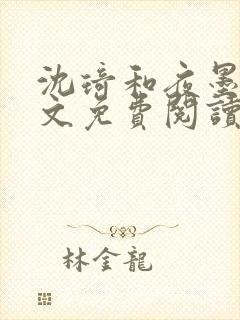 沈琦和夜墨
文免費閱讀
林金龍